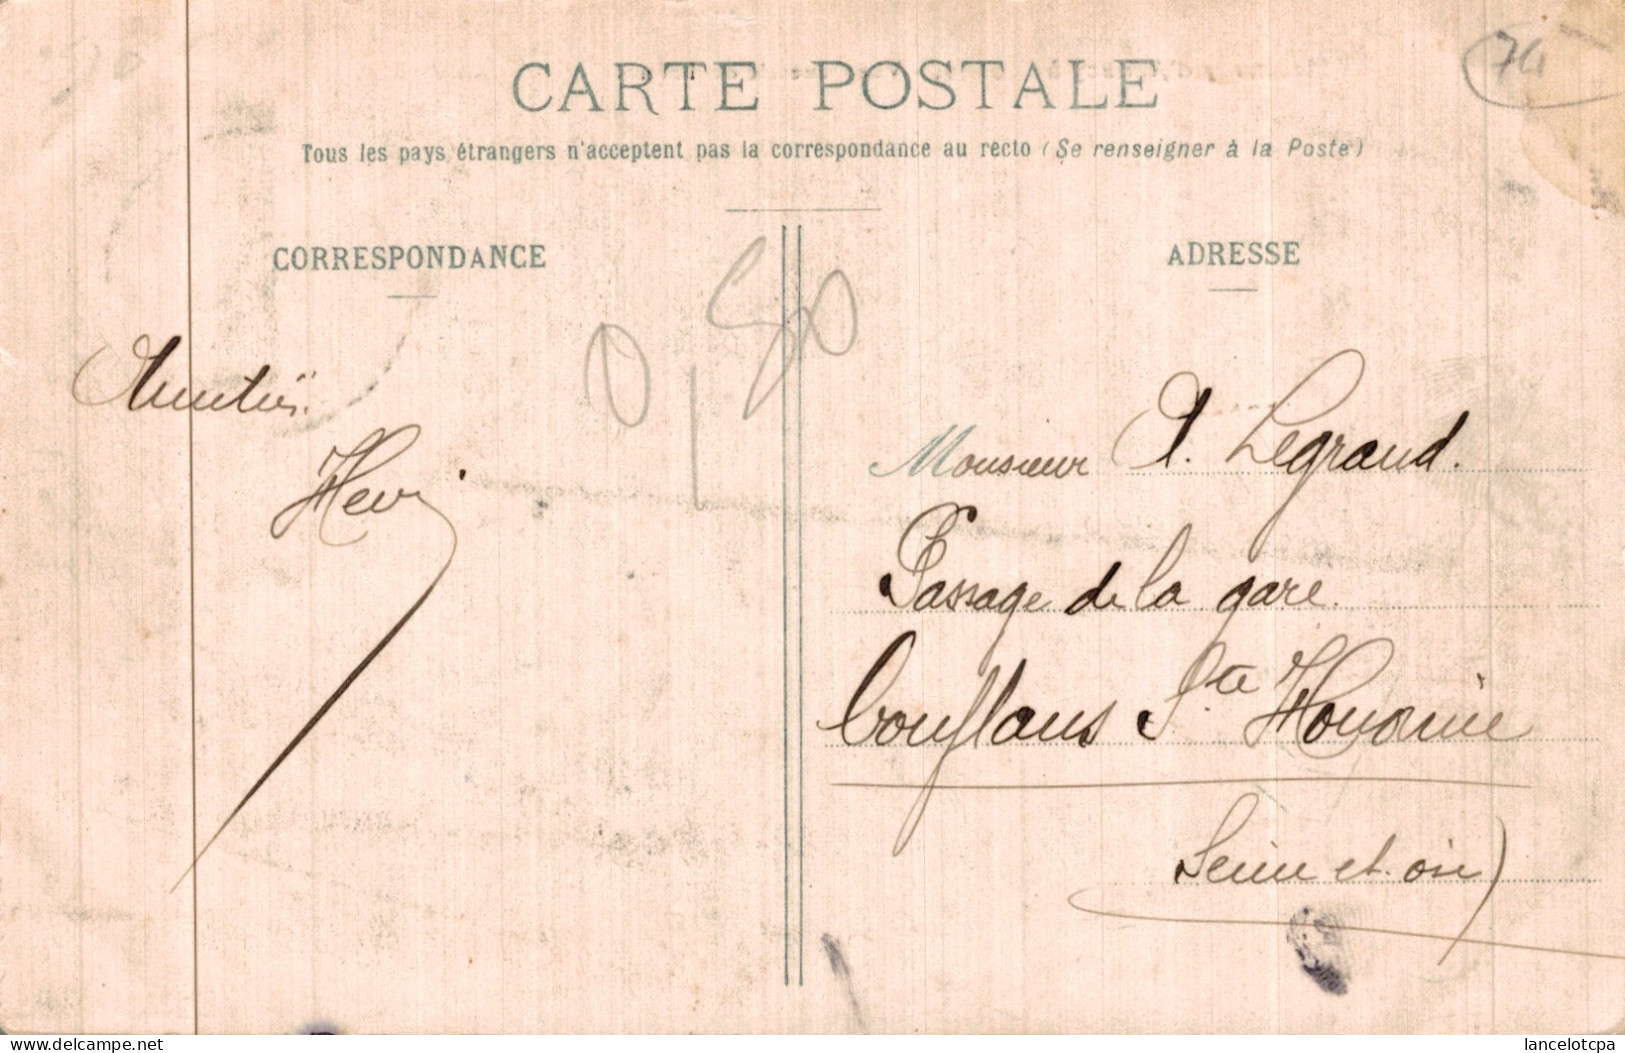 74
CARTE POSTALE
Tous les pays étrangers n'acceptent pas la correspondance au recto (Se renseigner à la Poste)
CORRESPONDANCE
Amitiés.
Henri
0,50
ADRESSE
Monsieur A. Legrand.
Passage de la gare.
Conflans Ste Honorine
Seine et oise)
www.delcampe.net
lancelotcpa